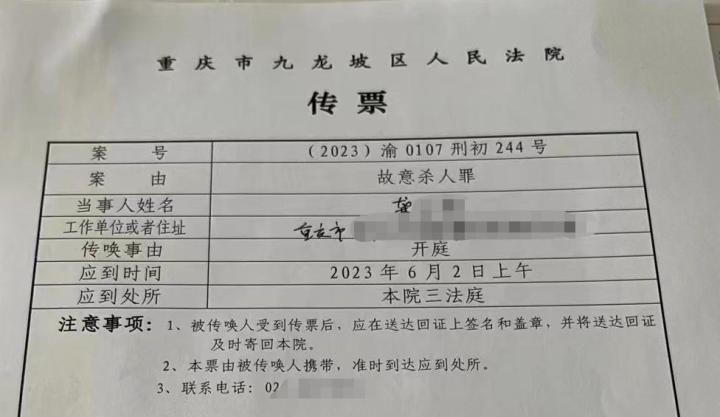 重庆市九龙坡区人民法院
传票
案号 (2023)渝0107刑初244号
案由 故意杀人罪
当事人姓名
工作单位或者住址 重庆市
传唤事由 开庭
应到时间 2023年6月2日上午
应到处所 本院三法庭
注意事项：1、被传唤人受到传票后，应在送达回证上签名和盖章，并将送达回证
及时寄回本院。
2、本票由被传唤人携带，准时到达应到处所。
3、联系电话：02